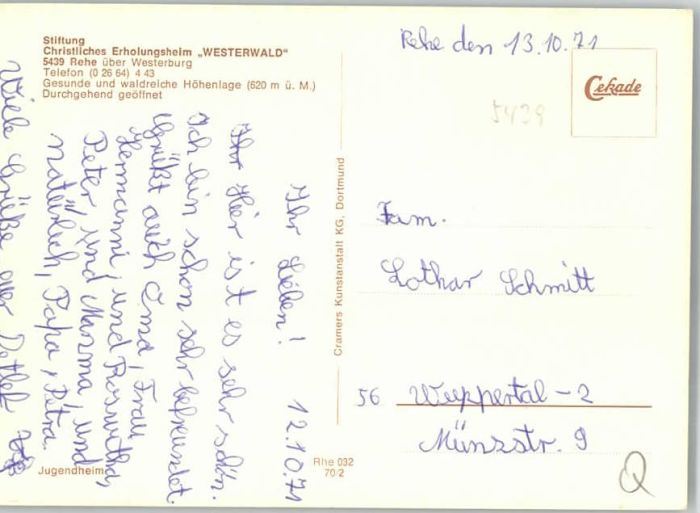 Stiftung
Christliches Erholungsheim „WESTERWALD“
5439 Rehe über Westerburg
Telefon (0 26 64) 4 43
Gesunde und waldreiche Höhenlage (620 m ü. M.)
Durchgehend geöffnet
12.10.71
Ihr Lieben!
Ihr Hier ist es sehr schön.
Ich bin schon sehr befreundet.
Grüßt auch Oma, Frau
Hermanni, und Roswitha,
Peter, und Mama, und
natürlich, Papa, Petra.
Viele Grüße euer Detlef
Jugendheim
Cramers Kunstanstalt KG, Dortmund
Rhe 032
70 2
Rehe den 13.10.71
Cekade
5439
Fam.
Lothar Schmitt
56 Wuppertal-2
Münzstr. 9
Q